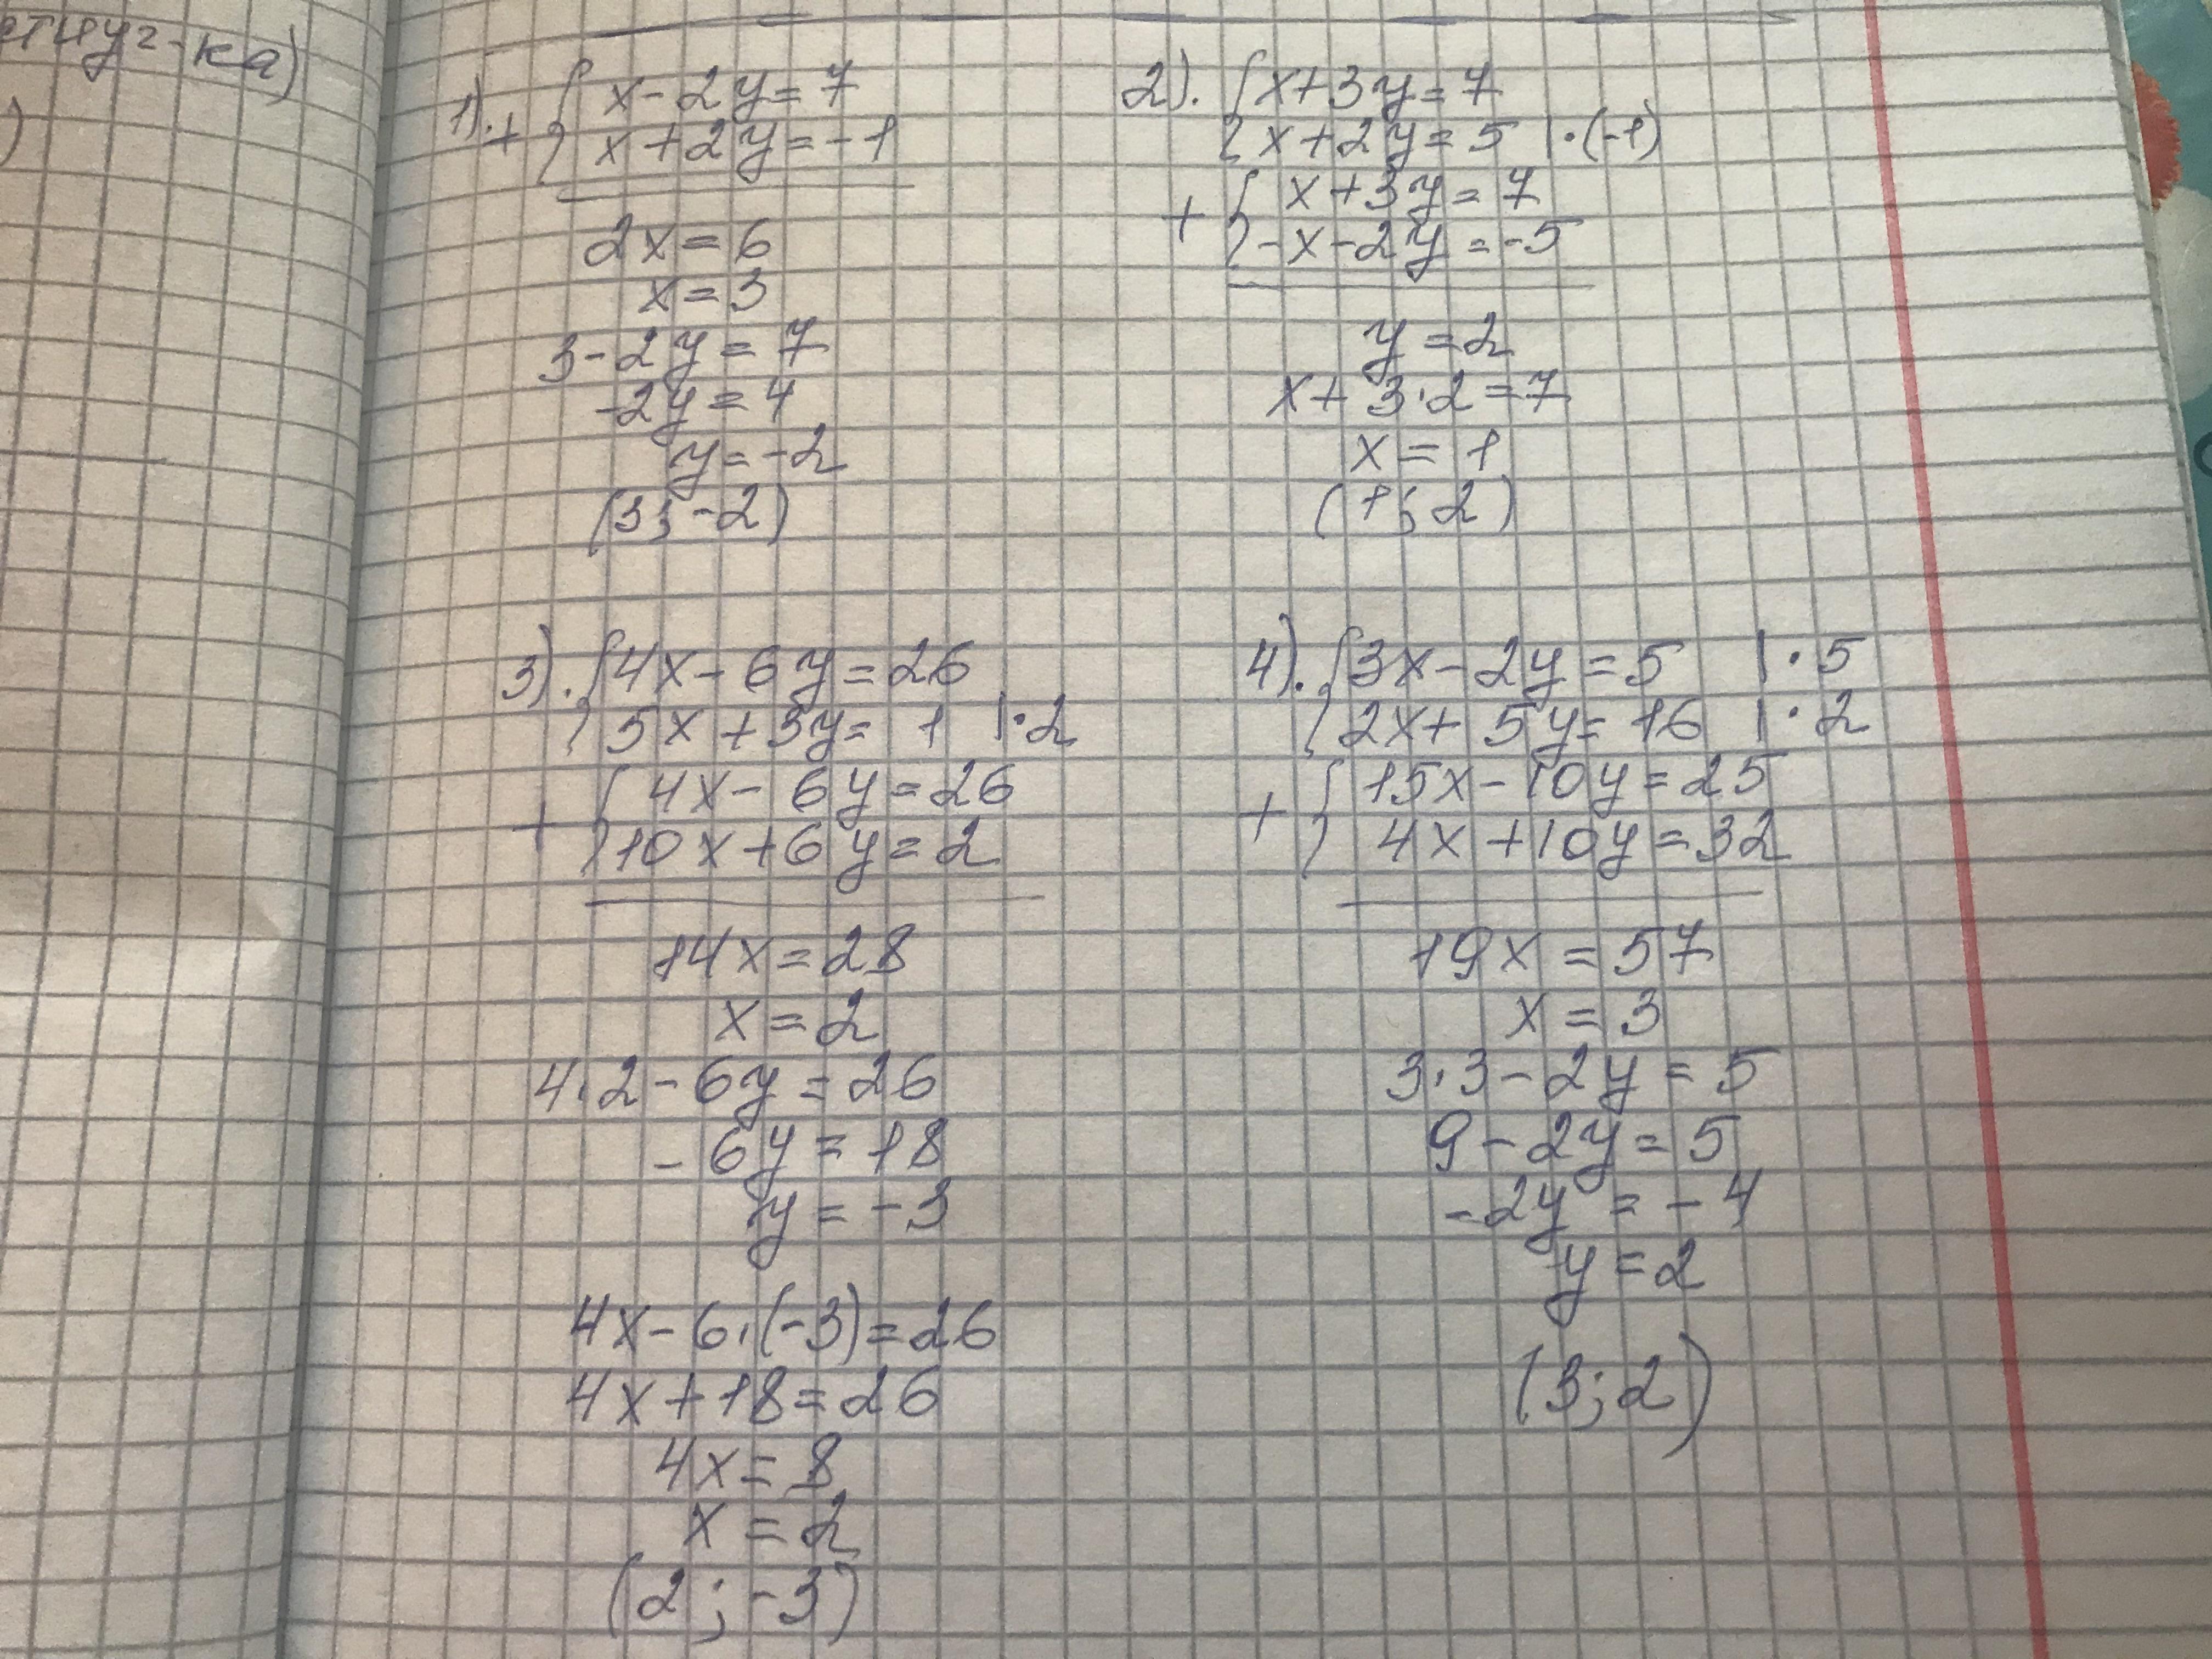 -ка)
)
1). + { x - 2y = 7
x + 2y = -1
2x = 6
x = 3
3 - 2y = 7
-2y = 4
y = -2
(3; -2)
2). { x + 3y = 7
x + 2y = 5 | · (-1)
+ { x + 3y = 7
-x - 2y = -5
y = 2
x + 3 · 2 = 7
x = 1
(1; 2)
3). { 4x - 6y = 26
5x + 3y = 1 | · 2
+ { 4x - 6y = 26
10x + 6y = 2
14x = 28
x = 2
4 · 2 - 6y = 26
- 6y = 18
y = -3
4x - 6 · (-3) = 26
4x + 18 = 26
4x = 8
x = 2
(2; -3)
4). { 3x - 2y = 5 | · 5
2x + 5y = 16 | · 2
+ { 15x - 10y = 25
4x + 10y = 32
19x = 57
x = 3
3 · 3 - 2y = 5
9 - 2y = 5
-2y = -4
y = 2
(3; 2)